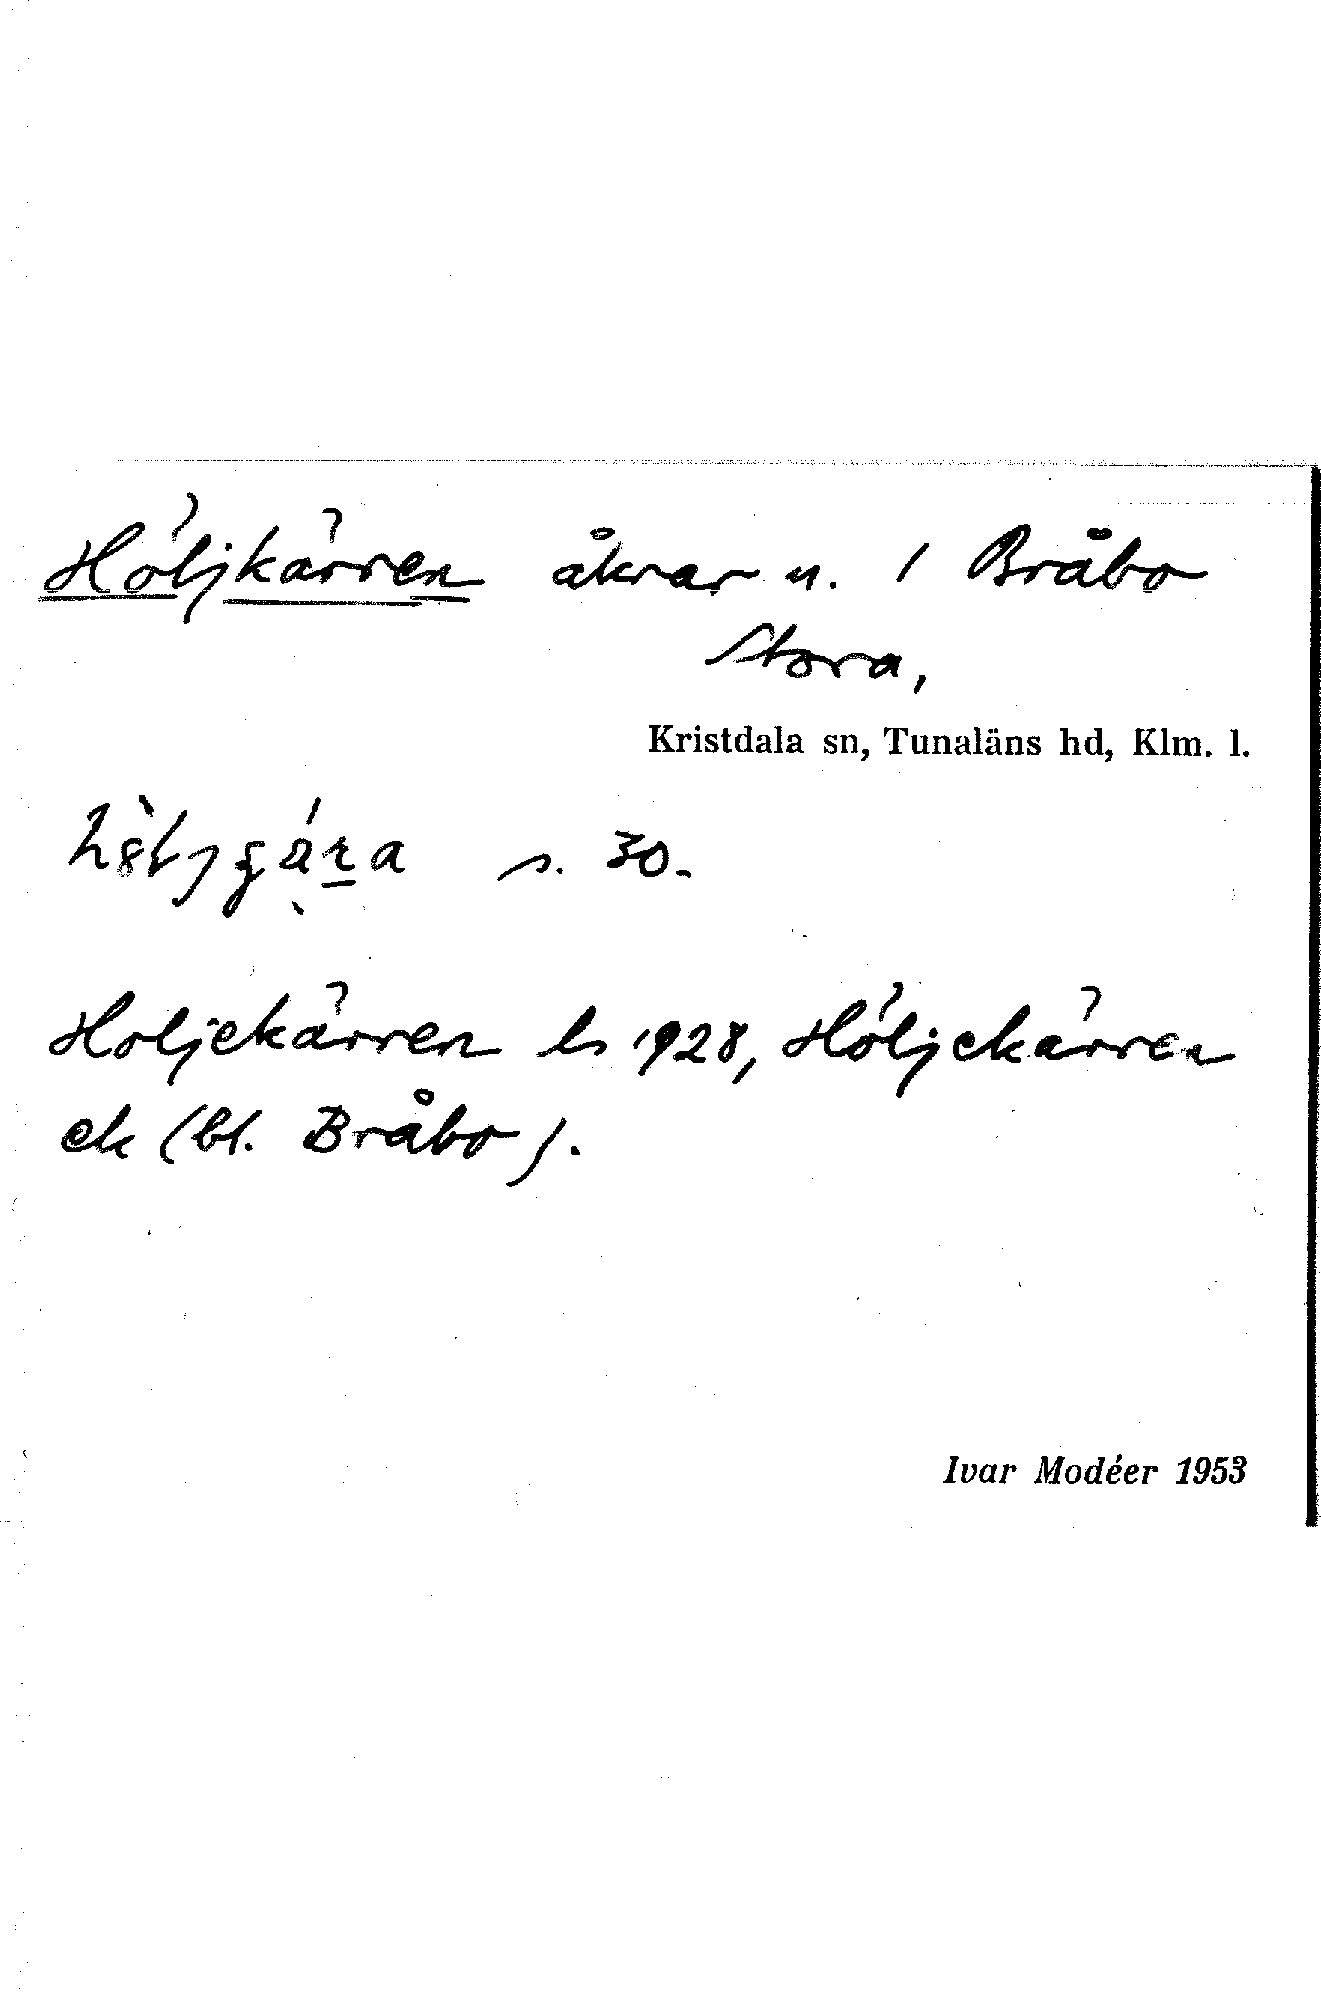 Höljkärren åkrar n. / Bråbo
Stora,
Kristdala sn, Tunaläns hd, Klm. l.
s. 30.
Holjekärren ls 1928, Höljekärren
ek (bl. Bråbo).
Ivar Modéer 1953